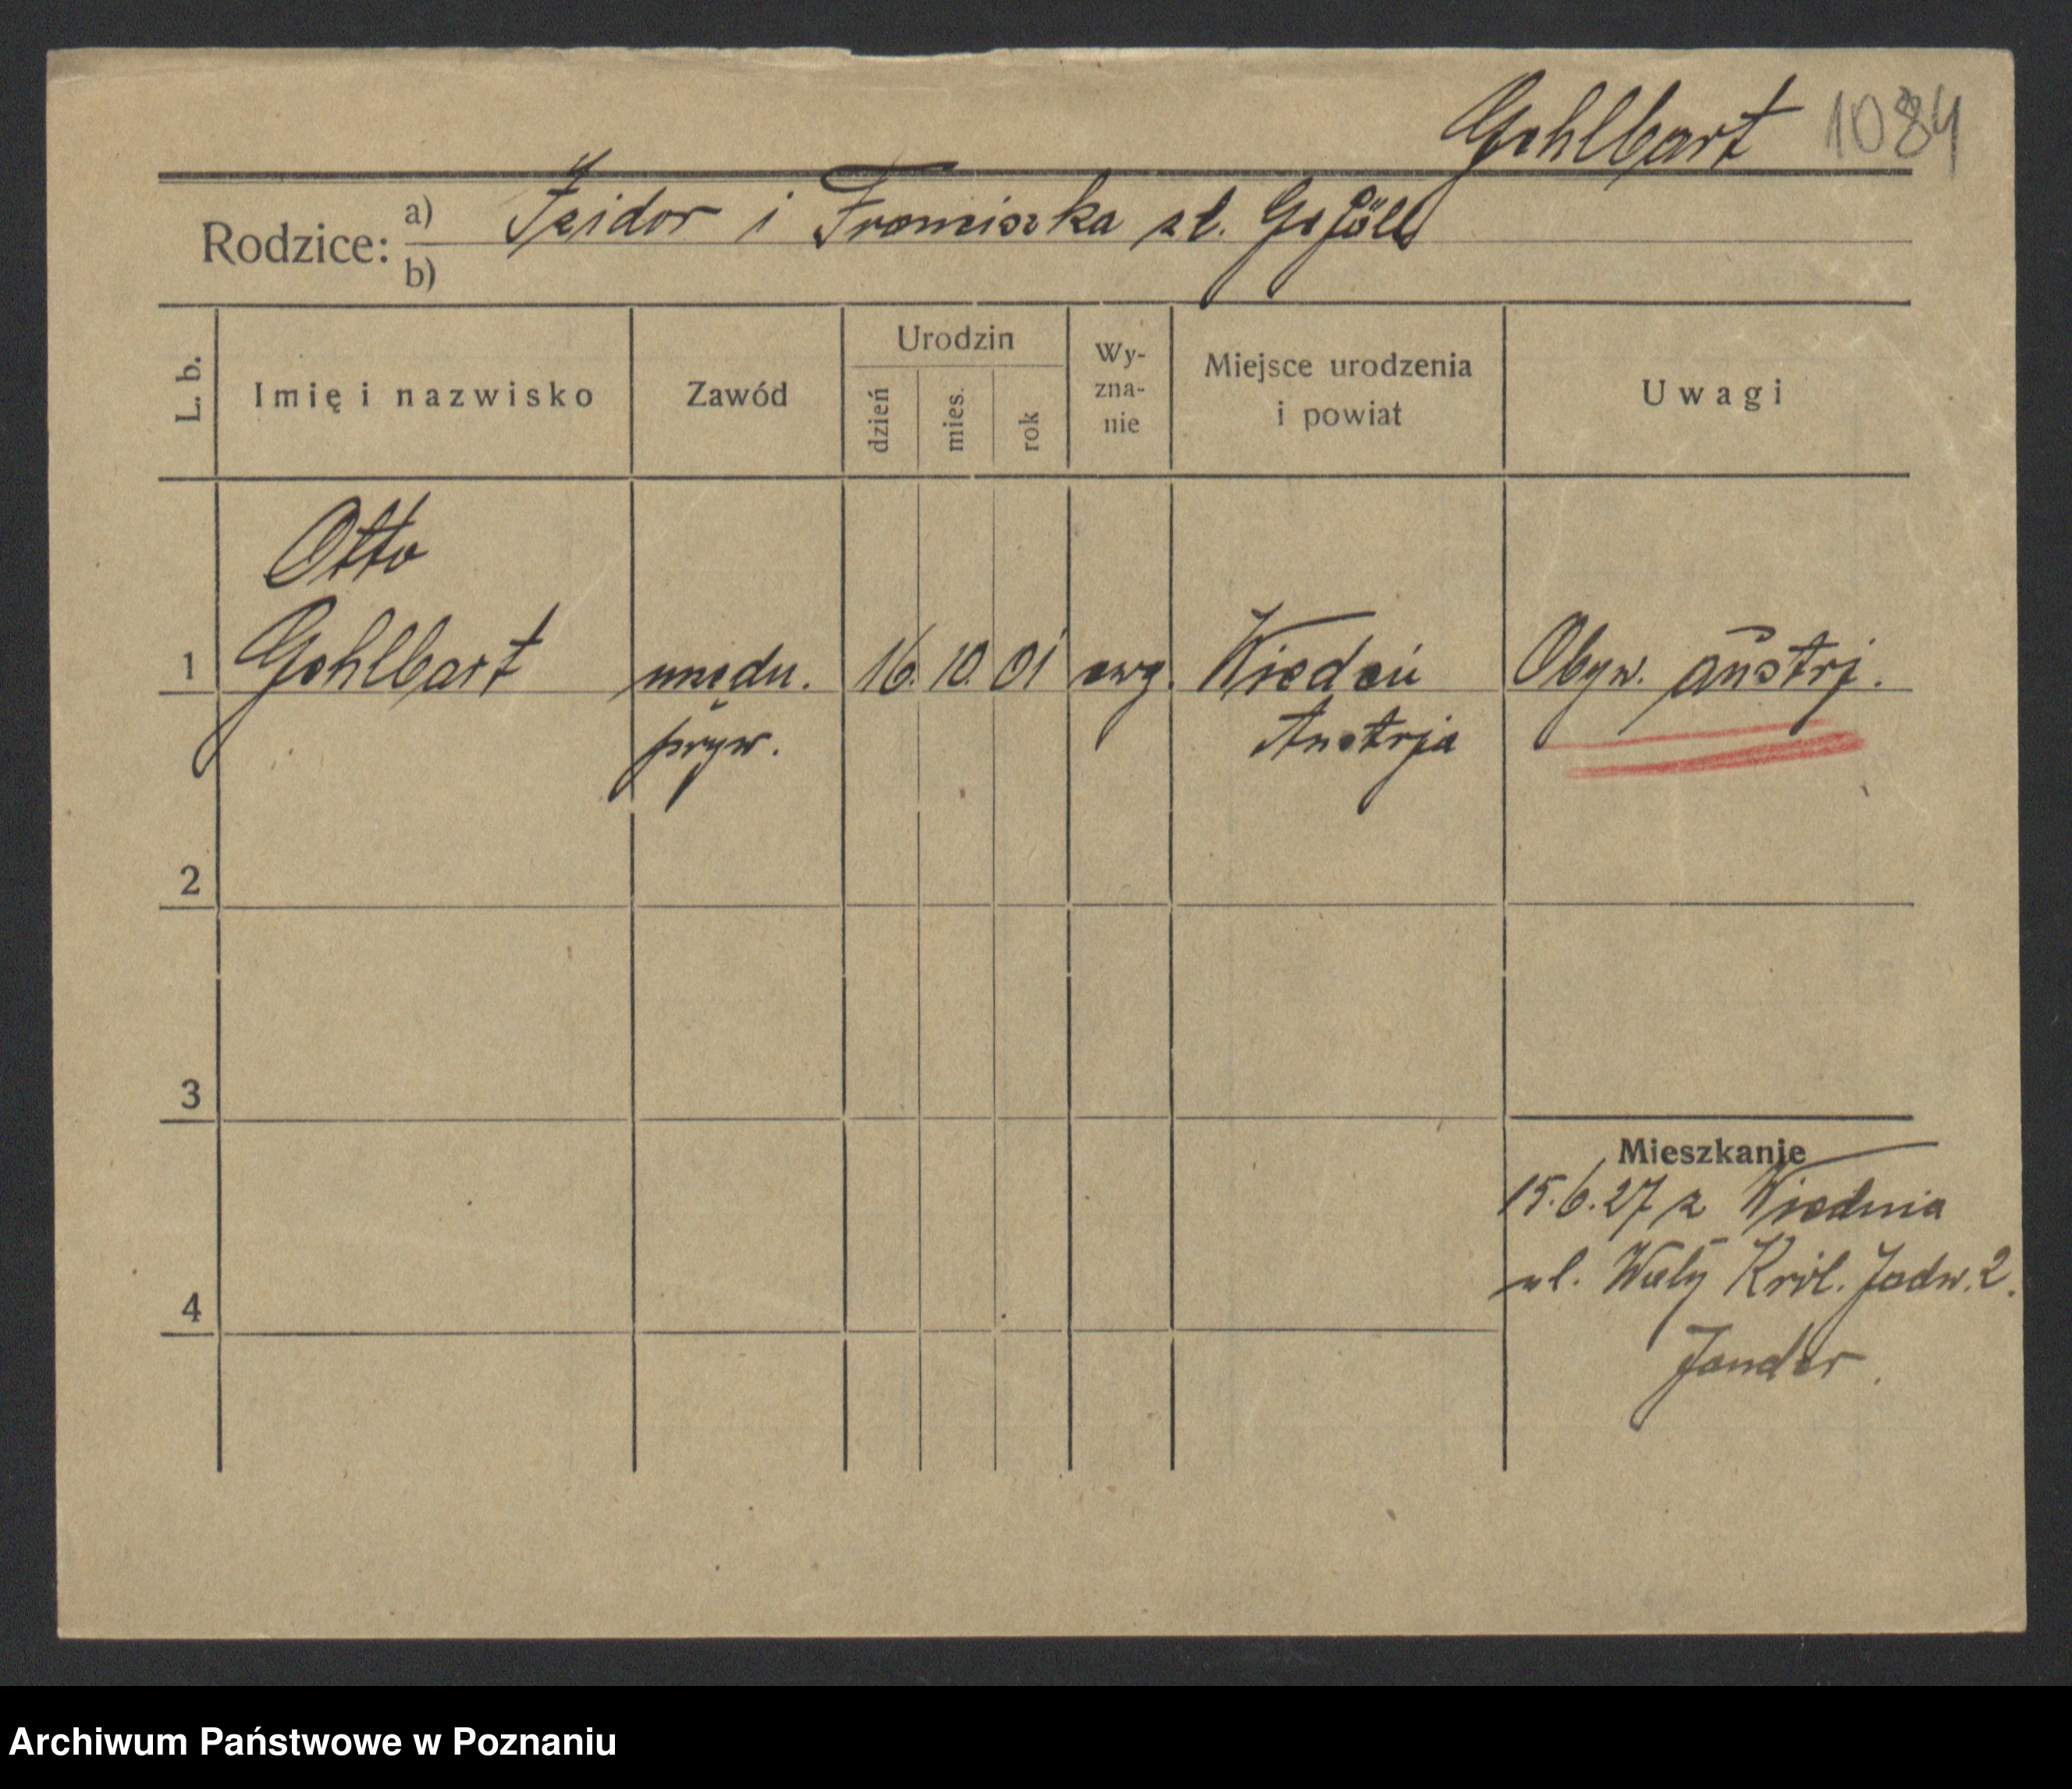 Gohlbart 1084
Rodzice: a) Izidor i Franciszka zd.
b)
L. b. Imię i nazwisko Zawód Urodzin dzień mies. rok Wy-zna-nie Miejsce urodzenia i powiat Uwagi
Otto
1 Gohlbart urzędn. 16. 10. 01 ewg. Wiedeń Obyw. austrj.
pryw. Austrja
2
3
Mieszkanie
15.6.27 z Wiednia
ul. Wały Król. Jadw. 2.
4
Jander.
Archiwum Państwowe w Poznaniu